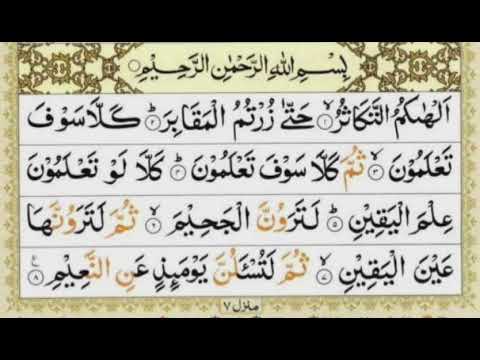 بِسْمِ اللهِ الرَّحْمٰنِ الرَّحِيْمِ
اَلْهٰىكُمُ التَّكَاثُرُ ۙ۱ حَتّٰى زُرْتُمُ الْمَقَابِرَ ؕ۲ كَلَّا سَوْفَ
تَعْلَمُوْنَ ۙ۳ ثُمَّ كَلَّا سَوْفَ تَعْلَمُوْنَ ؕ۴ كَلَّا لَوْ تَعْلَمُوْنَ
عِلْمَ الْيَقِيْنِ ؕ۵ لَتَرَوُنَّ الْجَحِيْمَ ۙ۶ ثُمَّ لَتَرَوُنَّهَا
عَيْنَ الْيَقِيْنِ ۙ۷ ثُمَّ لَتُسْئَلُنَّ يَوْمَئِذٍ عَنِ النَّعِيْمِ ۸ ع
منزل ۷